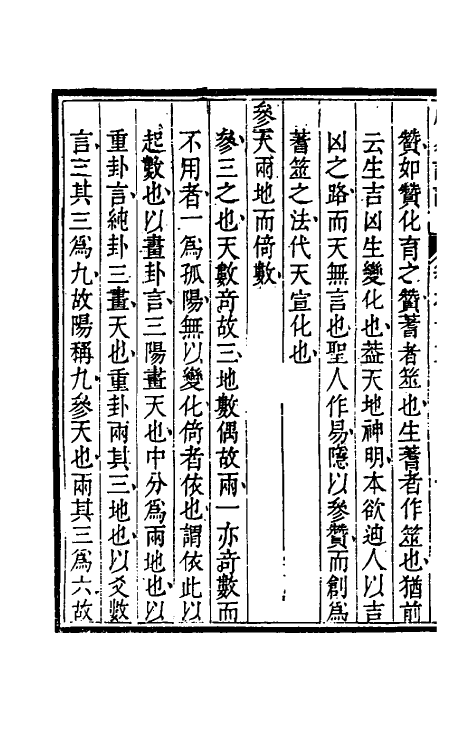 贊如贊化育之贊蓍者筮也生蓍者作筮也猶前
云生吉凶生變化也葢天地神明本欲迪人以吉
凶之路而天無言也聖人作易隱以參贊而創爲
蓍筮之法代天宣化也
參天兩地而倚數
參三之也天數竒故三地數偶故兩一亦竒數而
不用者一爲孤陽無以變化倚者依也謂依此以
起數也以畫卦言三陽畫天也中分爲兩地也以
重卦言純卦三畫天也重卦兩其三地也以爻數
言三其三爲九故陽稱九參天也兩其三爲六故